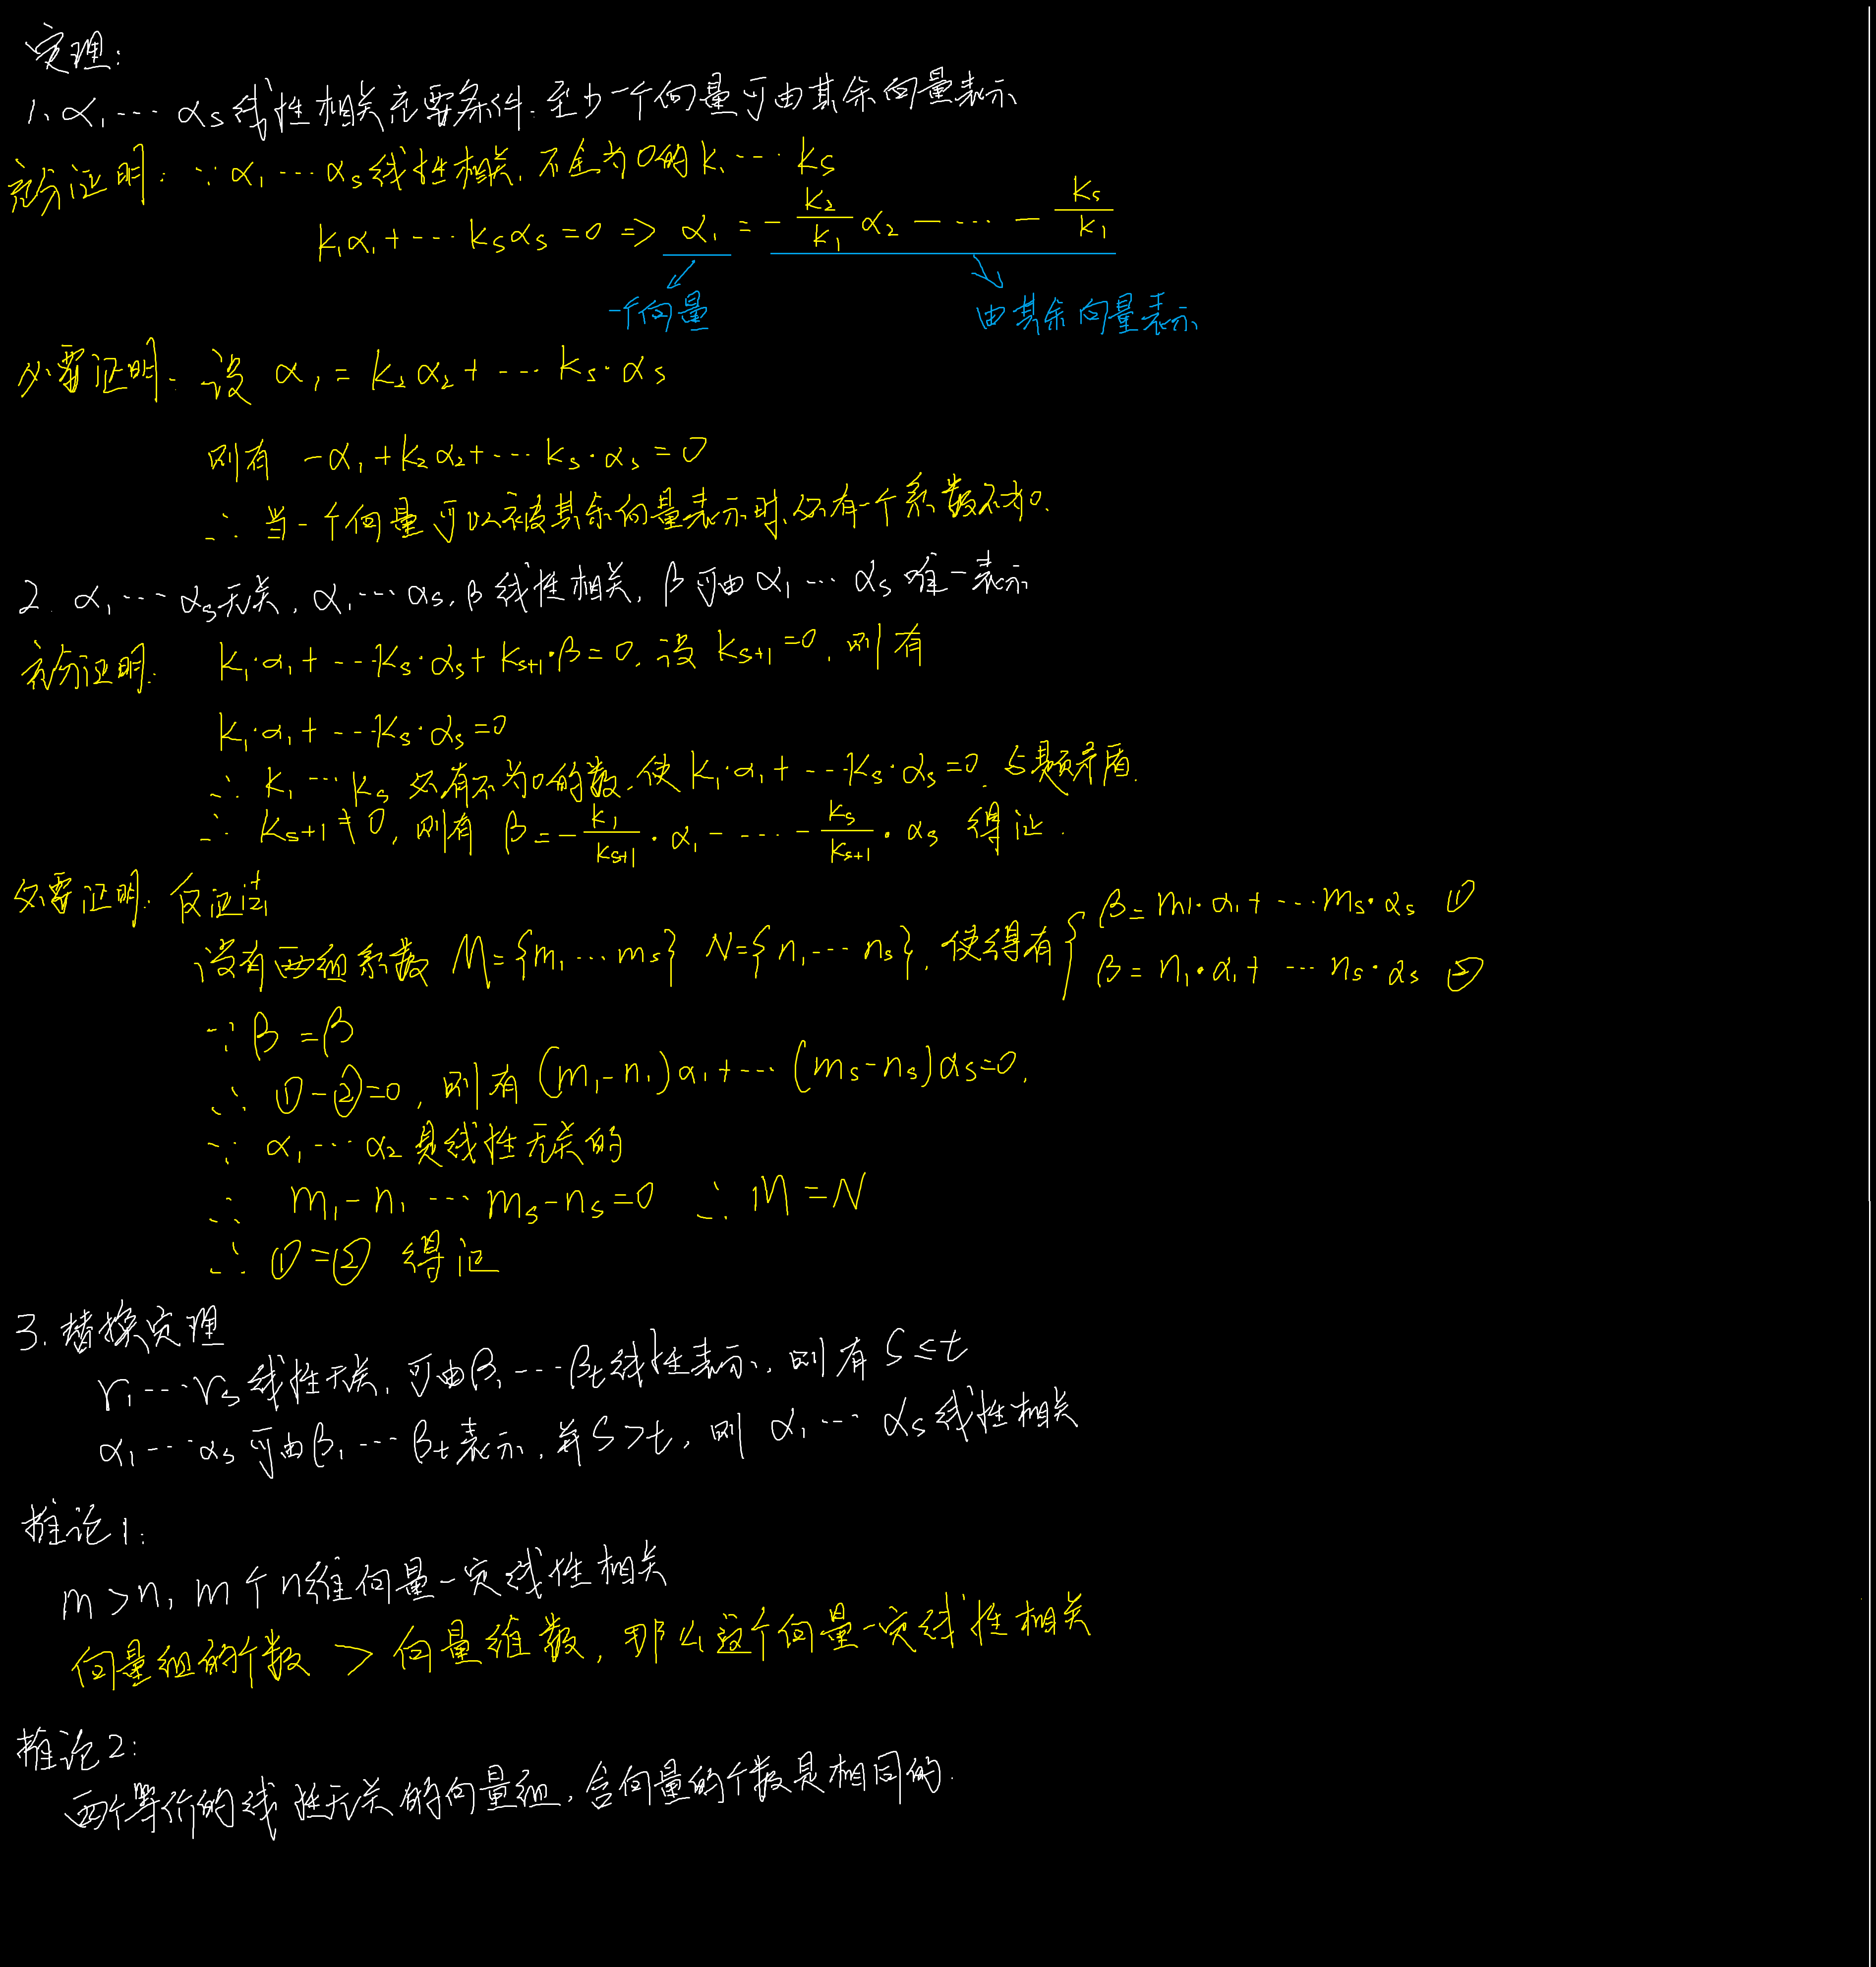 定理:
1、α₁ ··· αs 线性相关充要条件. 至少一个向量可由其余向量表示
充分证明: ∵ α₁ ··· αs 线性相关, 不全为0的 k₁ ··· ks
k₁α₁ + ··· ksαs = 0 => α₁ = - k₂/k₁ α₂ - ··· - ks/k₁
一个向量 由其余向量表示
必要证明. 设 α₁ = k₂α₂ + ··· ks·αs
则有 -α₁ + k₂α₂ + ··· ks·αs = 0
∴ 当一个向量可以被其余向量表示时, 必有一个系数不为0.
2. α₁ ··· αs 无关, α₁ ··· αs, β 线性相关, β 可由 α₁ ··· αs 唯一表示
充分证明: k₁·α₁ + ··· ks·αs + ks+1·β = 0, 设 ks+1 = 0, 则有
k₁·α₁ + ··· ks·αs = 0
∴ k₁ ··· ks 必有不为0的数, 使 k₁·α₁ + ··· ks·αs = 0. 与题矛盾.
∴ ks+1 ≠ 0, 则有 β = - k₁/ks+1 · α₁ - ··· - ks/ks+1 · αs 得证.
必要证明. 反证法
设有两组系数 M={m₁ ··· ms} N={n₁ ··· ns}, 使得有 { β = m₁·α₁ + ··· ms·αs ①
β = n₁·α₁ + ··· ns·αs ②
∵ β = β
∴ ①-②=0, 则有 (m₁-n₁)α₁ + ··· (ms-ns)αs=0,
∵ α₁ ··· α₂ 是线性无关的
∴ m₁-n₁ ··· ms-ns=0 ∴ M=N
∴ ①=② 得证
3. 替换定理
r₁ ··· rs 线性无关, 可由β₁ ··· βt 线性表示, 则有 s ≤ t
α₁ ··· αs 可由 β₁ ··· βt 表示, 并 s > t, 则 α₁ ··· αs 线性相关
推论1:
m > n, m个n维向量一定线性相关
向量组的个数 > 向量维数, 那么这个向量一定线性相关
推论2:
两个等价的线性无关的向量组, 含向量的个数是相同的.